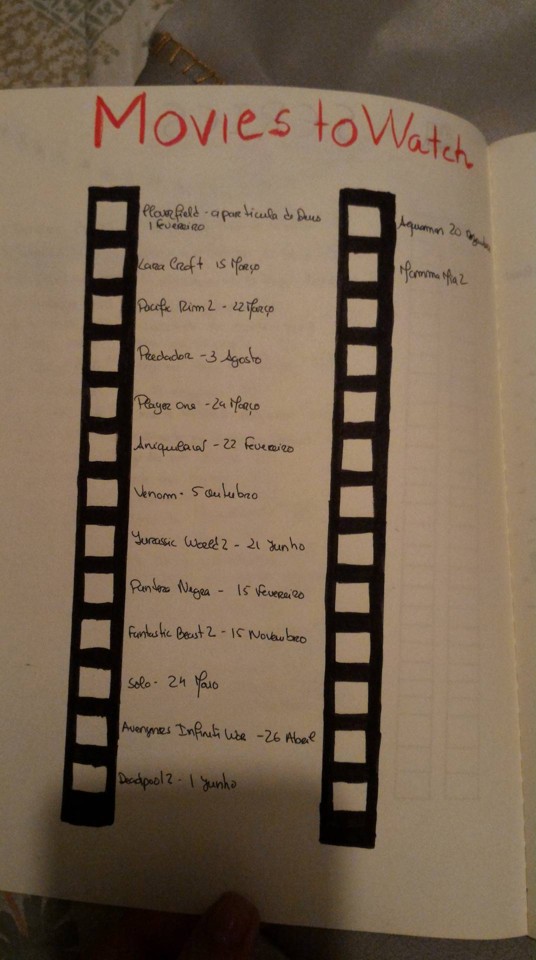 Movies to Watch
Cloverfield - a particula de Deus
1 Fevereiro
Lara Croft 15 Março
Pacific Rim 2 - 22 Março
Predador - 3 Agosto
Player One - 29 Março
Aniquilaçao - 22 Fevereiro
Venom - 5 Outubro
Jurassic World 2 - 21 Junho
Pantera Negra - 15 Fevereiro
Fantastic Beast 2 - 15 Novembro
Solo - 24 Maio
Avengers Infiniti War - 26 Abril
Deadpool 2 - 1 Junho
Aquaman 20 Dezembro
Mamma Mia 2